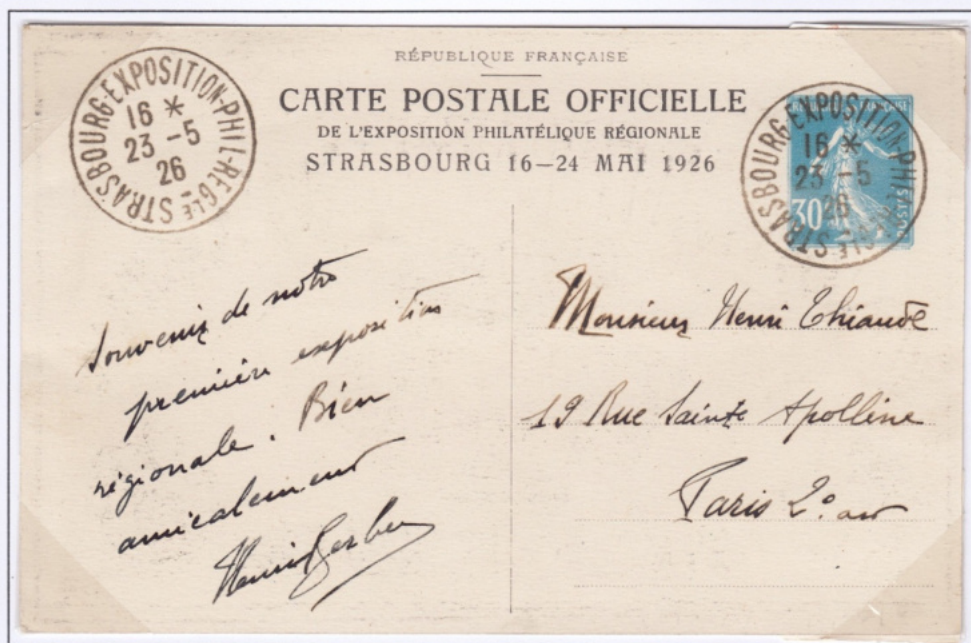 RÉPUBLIQUE FRANÇAISE
CARTE POSTALE OFFICIELLE
DE L'EXPOSITION PHILATÉLIQUE RÉGIONALE
STRASBOURG 16–24 MAI 1926
STRASBOURG-EXPOSITION-PHIL-RÉGLE
16 *
23 -5
26
STRASBOURG-EXPOSITION-PHIL-RÉGLE
16 *
23 -5
26
30
POSTES
Souvenir de notre
première exposition
régionale. Bien
amicalement
Henri Gerber
Monsieur Henri Thiaude
19 Rue Sainte Apolline
Paris 2e